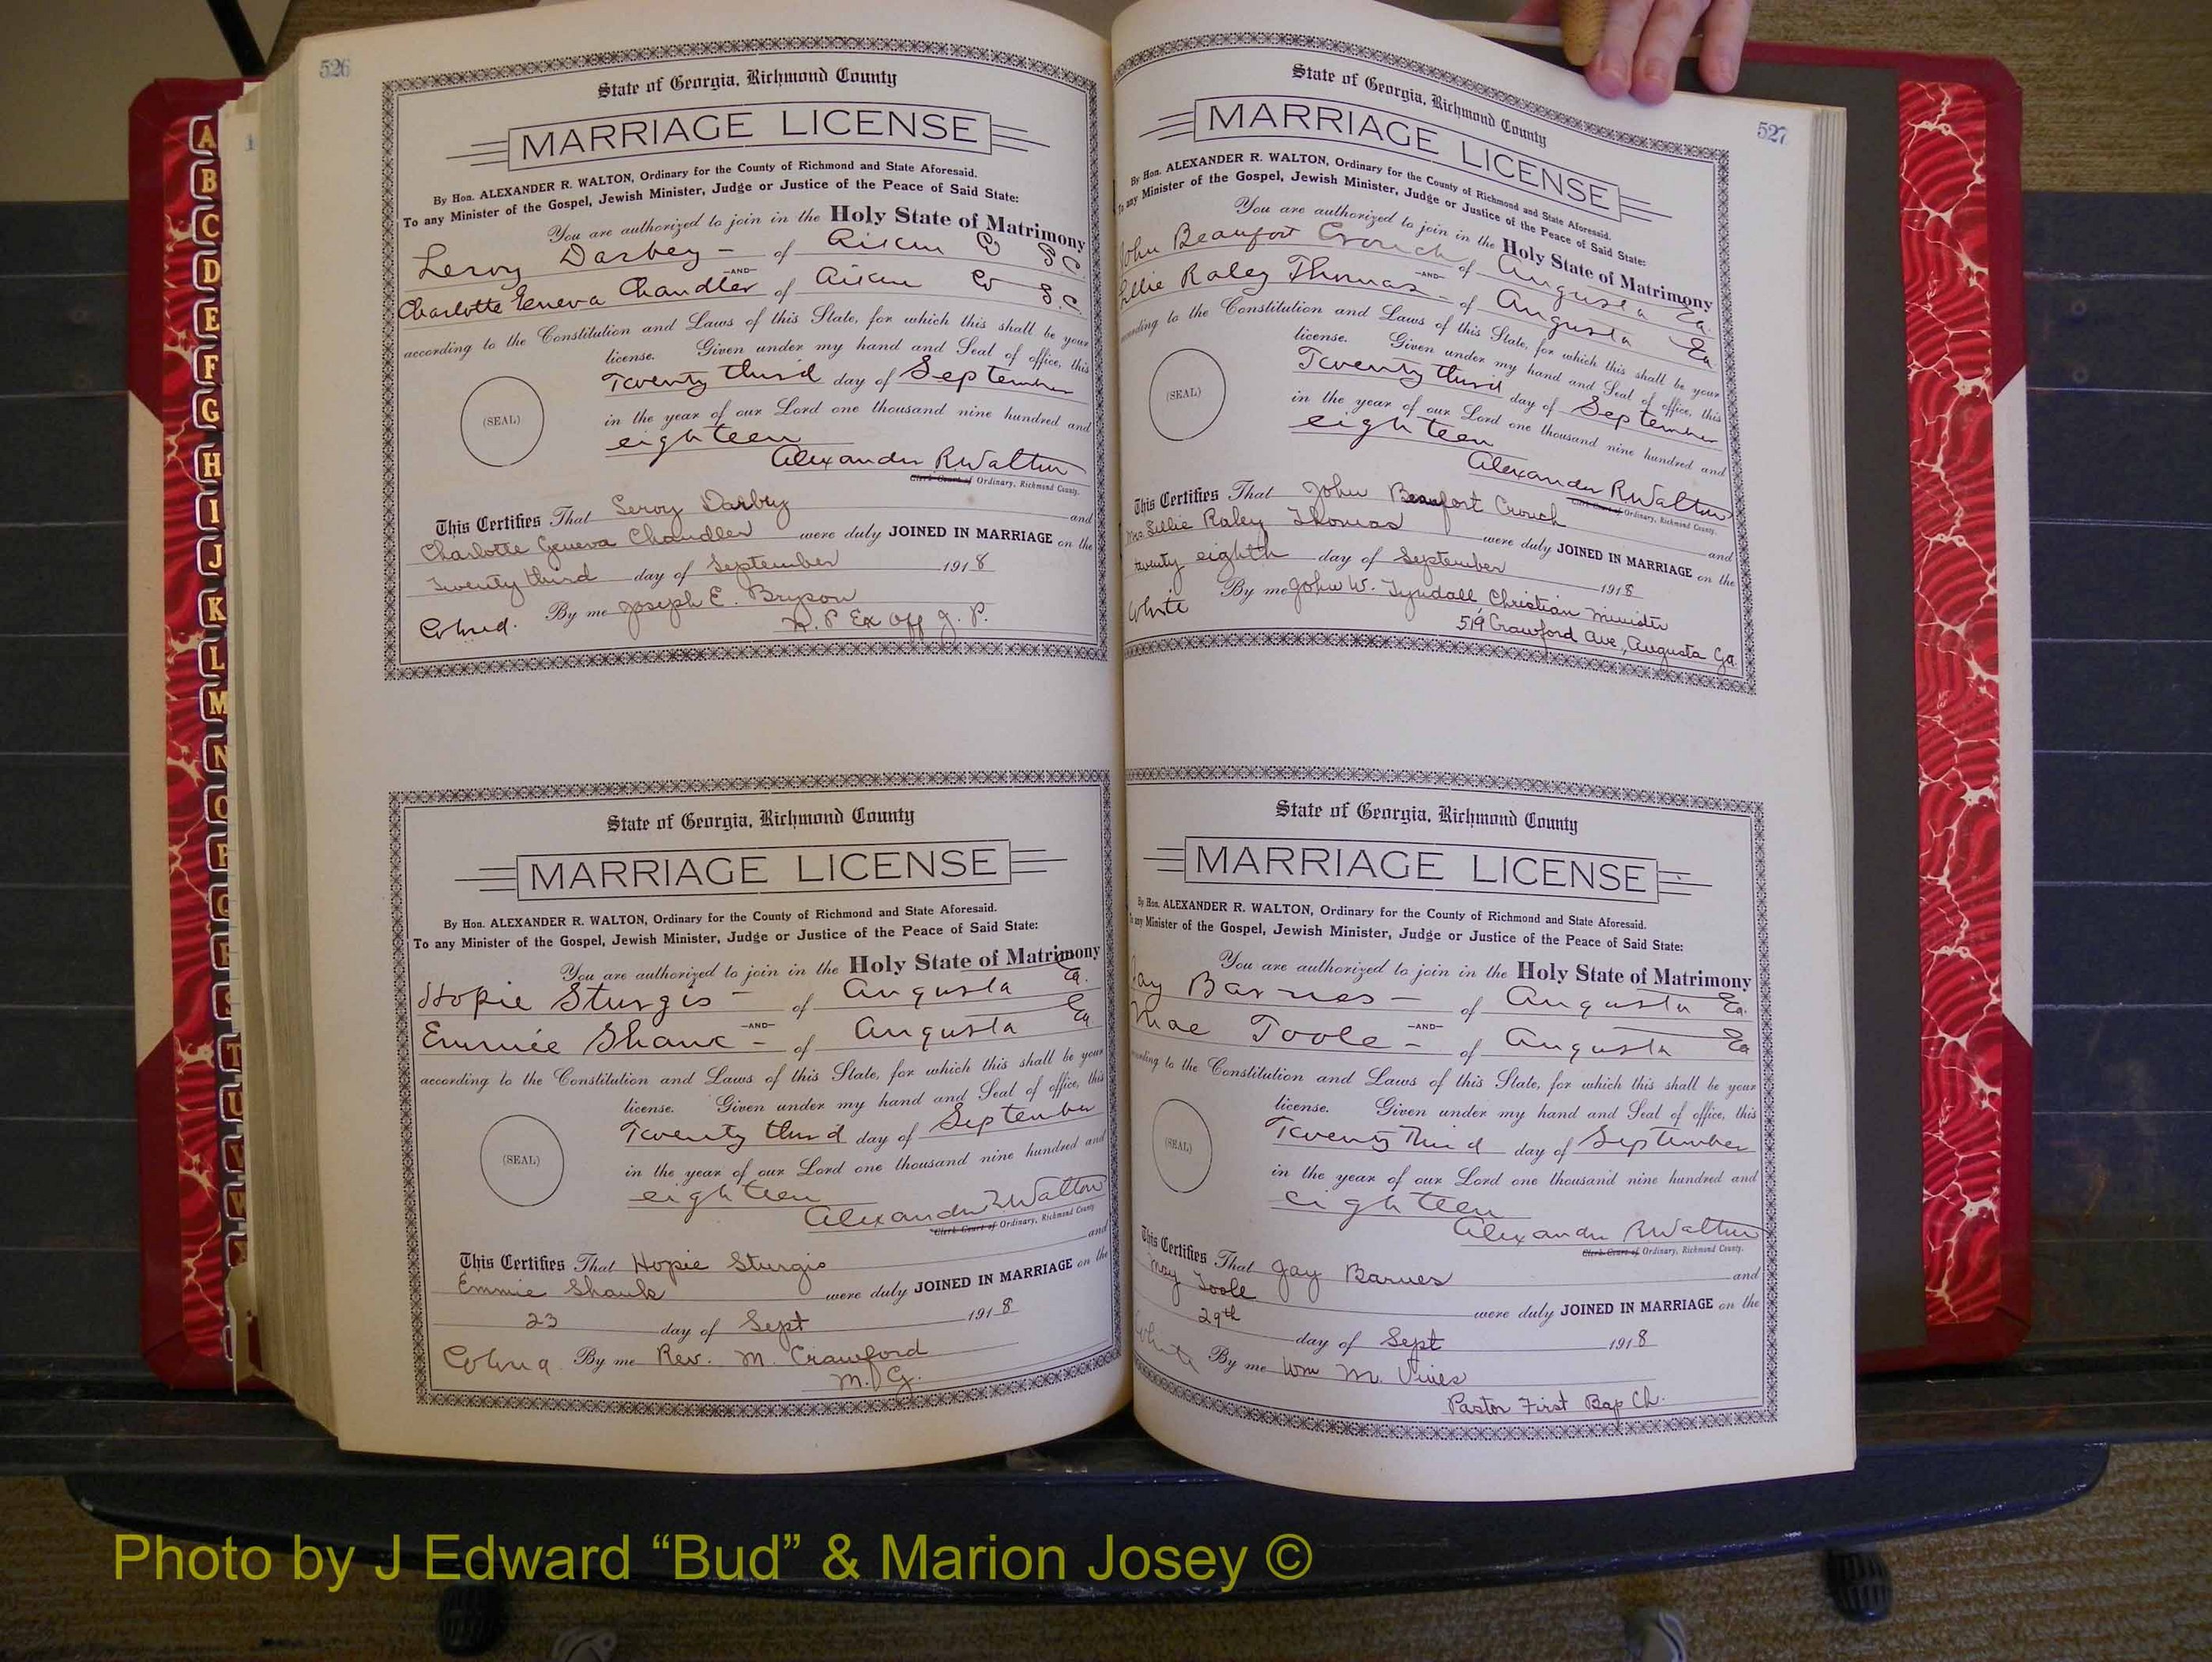 526
State of Georgia, Richmond County
MARRIAGE LICENSE
By Hon. ALEXANDER R. WALTON, Ordinary for the County of Richmond and State Aforesaid.
To any Minister of the Gospel, Jewish Minister, Judge or Justice of the Peace of Said State:
You are authorized to join in the Holy State of Matrimony
Leroy Darbey - of Aiken Co S.C.
-AND-
Charlotte Geneva Chandler of Aiken Co S.C.
according to the Constitution and Laws of this State, for which this shall be your
license. Given under my hand and Seal of office, this
Twenty third day of September
(SEAL)
in the year of our Lord one thousand nine hundred and
eighteen
Alexander R Walton
Clerk Court of Ordinary, Richmond County.
This Certifies That Leroy Darby and
Charlotte Geneva Chandler were duly JOINED IN MARRIAGE on the
Twenty third day of September 1918
Colored. By me Joseph E. Bryson
N. P Ex off J. P.
State of Georgia, Richmond County
MARRIAGE LICENSE
By Hon. ALEXANDER R. WALTON, Ordinary for the County of Richmond and State Aforesaid.
To any Minister of the Gospel, Jewish Minister, Judge or Justice of the Peace of Said State:
You are authorized to join in the Holy State of Matrimony
Hopie Sturgis - of Augusta Ga.
-AND-
Emmie Shank - of Augusta Ga
according to the Constitution and Laws of this State, for which this shall be your
license. Given under my hand and Seal of office, this
Twenty third day of September
(SEAL)
in the year of our Lord one thousand nine hundred and
eighteen
Alexander R Walton
Clerk Court of Ordinary, Richmond County
This Certifies That Hopie Sturgis and
Emmie Shank were duly JOINED IN MARRIAGE on the
23 day of Sept 1918
Colored By me Rev. M. Crawford
M. G.
527
State of Georgia, Richmond County
MARRIAGE LICENSE
By Hon. ALEXANDER R. WALTON, Ordinary for the County of Richmond and State Aforesaid.
To any Minister of the Gospel, Jewish Minister, Judge or Justice of the Peace of Said State:
You are authorized to join in the Holy State of Matrimony
John Beaufort Crouch of Augusta Ga.
-AND-
Lillie Raley Thomas - of Augusta Ga
according to the Constitution and Laws of this State, for which this shall be your
license. Given under my hand and Seal of office, this
Twenty third day of September
(SEAL)
in the year of our Lord one thousand nine hundred and
eighteen
Alexander R Walton
Clerk Court of Ordinary, Richmond County.
This Certifies That John Beaufort Crouch and
Mrs. Lillie Raley Thomas were duly JOINED IN MARRIAGE on the
twenty eighth day of September 1918
White By me John W. Tyndall, Christian Minister
519 Crawford Ave, Augusta Ga.
State of Georgia, Richmond County
MARRIAGE LICENSE
By Hon. ALEXANDER R. WALTON, Ordinary for the County of Richmond and State Aforesaid.
To any Minister of the Gospel, Jewish Minister, Judge or Justice of the Peace of Said State:
You are authorized to join in the Holy State of Matrimony
Jay Barnes - of Augusta Ga.
-AND-
Mae Toole - of Augusta Ga
according to the Constitution and Laws of this State, for which this shall be your
license. Given under my hand and Seal of office, this
Twenty Third day of September
(SEAL)
in the year of our Lord one thousand nine hundred and
eighteen
Alexander R Walton
Clerk Court of Ordinary, Richmond County.
This Certifies That Jay Barnes and
May Toole were duly JOINED IN MARRIAGE on the
29th day of Sept 1918
White By me Wm M. Vines
Pastor First Bap Ch.
A
B
C
D
E
F
G
H
I
J
K
L
M
N
O
P
Q
R
S
T
U
V
W
Photo by J Edward “Bud” & Marion Josey ©